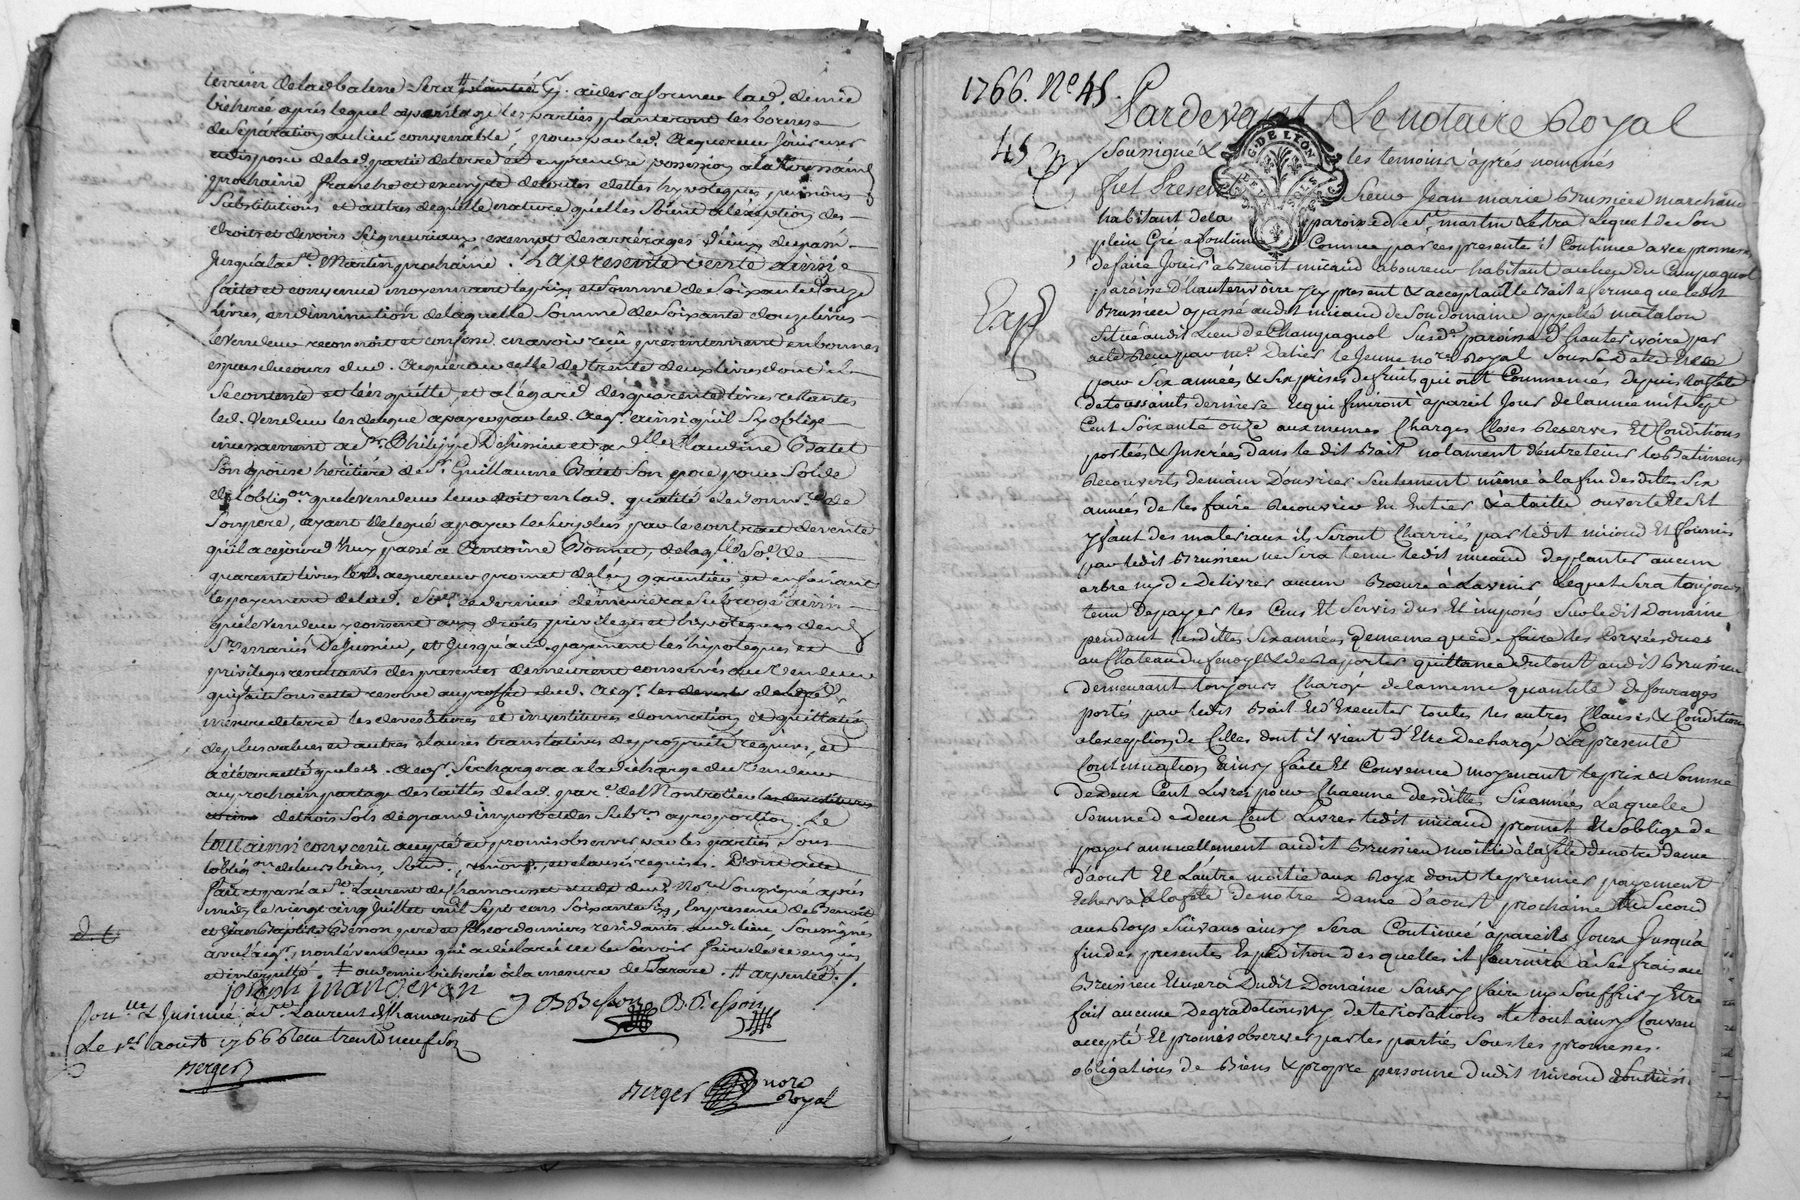 terrein de lad. baleine sera plantée aider a former lad. demie
bicherée après lequel arpentage les parties planteront les bornes
de séparation au lieu convenable, pour par led. Acquereur Jouir user
et disposer de lad. partie de terre et en prendre possession a la toussaint
prochaine franche et exempte de toutes dettes hypoteques pensions
substitutions et autres de quelle nature qu'elles soient a l'exception des
droits et devoirs seigneuriaux exempt des arrérages d'iceux du passé
Jusqu'a la St. Martin prochaine. La presente vente ainsi
faite et convenue moyennant le prix et somme de soixante douze
livres, en diminution de laquelle somme de soixante douze livres
le vendeur reconnoit et confesse avoir reçu presentement en bonnes
especes du cours dud. Acquereur celle de trente deux livres dont il
se contente et l'en quitte, et a l'égard des quarante livres restantes
led. Vendeur les delegue a payer par led. acqr. ainsi qu'il s'y oblige
incessament a Sr. Philippe Dejussieu et a dlle. Claudine Batet
son épouse heritiere de Sr. Guillaume Batet son pere pour solde
de l'oblig.on que le vendeur leur doit en lad. qualité
son pere, ayant delegué a payer le surplus par le contrat de vente
qu'il a cejourd'huy passé a Antoine Bonnet, de laq.lle so.e de
quarante livres led. acquereur promet de l'en garentir et en faisant
le payement de lad. so.e ce dernier demeurera subrogé ainsi
que le vendeur y consent aux droits privileges et hypoteques dend.
Srs. mariés Dejussieu, et Jusqu'aud. payement les hipoteques et
privileges resultants des presentes demeurent conservés au Vendeur
qui fait sous cette reserve au profit dud. Acqr.
les devestitures et investitures donnation et quittation
de plus values et autres clauses translatives de propriété requises, et
a été arretté que led. acqr. se chargera a la décharge du Vendeur
au prochain partage des tailles de lad. par.e de Montrotier
de trois sols de grand impot et des subres a proportion. Le
tout ainsi convenu accepté et promis observer par les parties sous
l'oblig.on de leurs biens, soum. renon. et clauses requises. Dont acte
fait et passé a St. Laurent de Chamousset etude du Nore. Soussigné après
midy le vingt cinq Juillet mil sept cens soixante six, En presence de Benoit
et Jean Baptiste Besson pere et fils cordonniers résidants aud. lieu, Soussignés
avec l'acqr. non le vendeur qui a déclaré ne le savoir faire de ce enquis
et interpellé. ǂ ou demie bicherée à la mesure de Tarare. ⧺ arpentée./.
joseph jnangeran
J B Besson B. Besson
Con.lle & Jnsinué à St. Laurent de Chamousset
Le 1er. aoust 1766 Receu trente neuf sols
Berger
Berger nore Royal
1766. No. 45.
45
Exp.
Pardevant Le notaire Royal
Soussigné & les temoins après nommés
G. DE LYON
fut Present Sieur Jean marie Brussieu marchand
habitant de la paroisse de St. martin Lestra Lequel de son
plein Gré a Continué Comme par ces presentes il Continue avec promesse
de faire Jouir a Benoit micaud laboureur habitant au lieu du Campagnol
paroisse d'hauterivoire Jcy present & acceptant le Bail a ferme que ledit
Brussieu a passé audit micaud de son domaine appellé matalon
situé audit Lieu de Champagnol Susde. paroisse d'hauterivoire par
acte Recu par me. Dalier le Jeune nore. Royal sous Sa date
pour Six années & Six prises de fruits qui ont Commencés depuis la fete
de toussaints derniere & qui finiront a pareil Jour de l'année mil Sept
Cent Soixante onze aux memes Charges Closes Reserves Et Conditions
portées & Jnserées dans le dit Bail notament d'entretenir les Batimens
Recouverts de main D'ouvrier Seulement même à la fin desdites Six
années de les faire Recouvrir En Entier & à taille ouverte Et
y faut des materiaux ils Seront Charriés par ledit micaud Et fournis
par ledit Brussieu ne Sera tenu ledit micaud de planter aucun
arbre ny de delivrer aucun Beurre à L'avenir Lequel Sera toujours
tenu De payer les Cens Et Servis dus Et imposés Sur ledit Domaine
pendant lesdittes Six années, de meme que de faire les Corvées dues
au Chateau du fenoyl & de Raporter quittance du tout audit Brussieu
demeurant toujours Chargé de la meme quantité de fourages
portés par ledit Bail Et d'Executer toutes les autres Clauses & Conditions
a l'exception de Celles dont il vient d'Etre Dechargé La presente
Continuation Ainsy faite Et Convenue moyenant le prix & Somme
de deux Cent Livres pour Chacune desdittes Six années Laquelle
Somme de deux Cent Livres ledit micaud promet Et s'oblige de
payer annuellement audit Brussieu moitié à la fete de notre dame
d'aoust Et L'autre moitié aux Roys dont le premier payement
Echerra à la fete de notre Dame d'aoust prochaine le Second
aux Roys Suivans ainsy Sera Continué a pareils Jours Jusqu'a
fin des presentes Expedition des quelles il fournira à Ses frais au
Brussieu Et usera Dudit Domaine Sans y faire ny Souffrir y Etre
fait aucune Degradations ny deteriorations Et tout ainsy Convenu
accepté Et promis observer par les parties Sous les promesses
obligations de Biens & propre personne dudit micaud